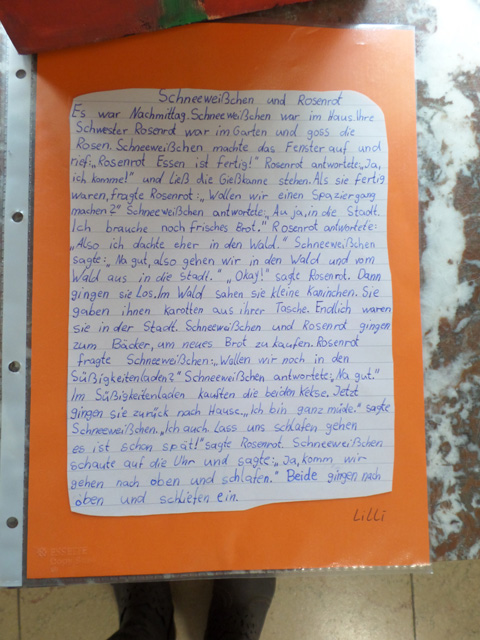 Schneeweißchen und Rosenrot
Es war Nachmittag. Schneeweißchen war im Haus. Ihre
Schwester Rosenrot war im Garten und goss die
Rosen. Schneeweißchen machte das Fenster auf und
rief: „Rosenrot Essen ist fertig!" Rosenrot antwortete: „Ja,
ich komme!" und Ließ die Gießkanne stehen. Als sie fertig
waren, fragte Rosenrot: „Wollen wir einen Spaziergang
machen?" Schneeweißchen antwortete: „Au ja, in die Stadt.
Ich brauche noch frisches Brot." Rosenrot antwortete:
„Also ich dachte eher in den Wald." Schneeweißchen
sagte: „Na gut, also gehen wir in den Wald und vom
Wald aus in die Stadt." „Okay!" sagte Rosenrot. Dann
gingen sie Los. Im Wald sahen sie kleine Kaninchen. Sie
gaben ihnen Karotten aus ihrer Tasche. Endlich waren
sie in der Stadt. Schneeweißchen und Rosenrot gingen
zum Bäcker, um neues Brot zu kaufen. Rosenrot
fragte Schneeweißchen: „Wollen wir noch in den
Süßigkeitenladen?" Schneeweißchen antwortete: „Na gut."
Im Süßigkeitenladen kauften die beiden Kekse. Jetzt
gingen sie zurück nach Hause. „Ich bin ganz müde." sagte
Schneeweißchen. „Ich auch. Lass uns schlafen gehen
es ist schon spät!" sagte Rosenrot. Schneeweißchen
schaute auf die Uhr und sagte: „Ja, komm wir
gehen nach oben und schlafen." Beide gingen nach
oben und schliefen ein.
Lilli